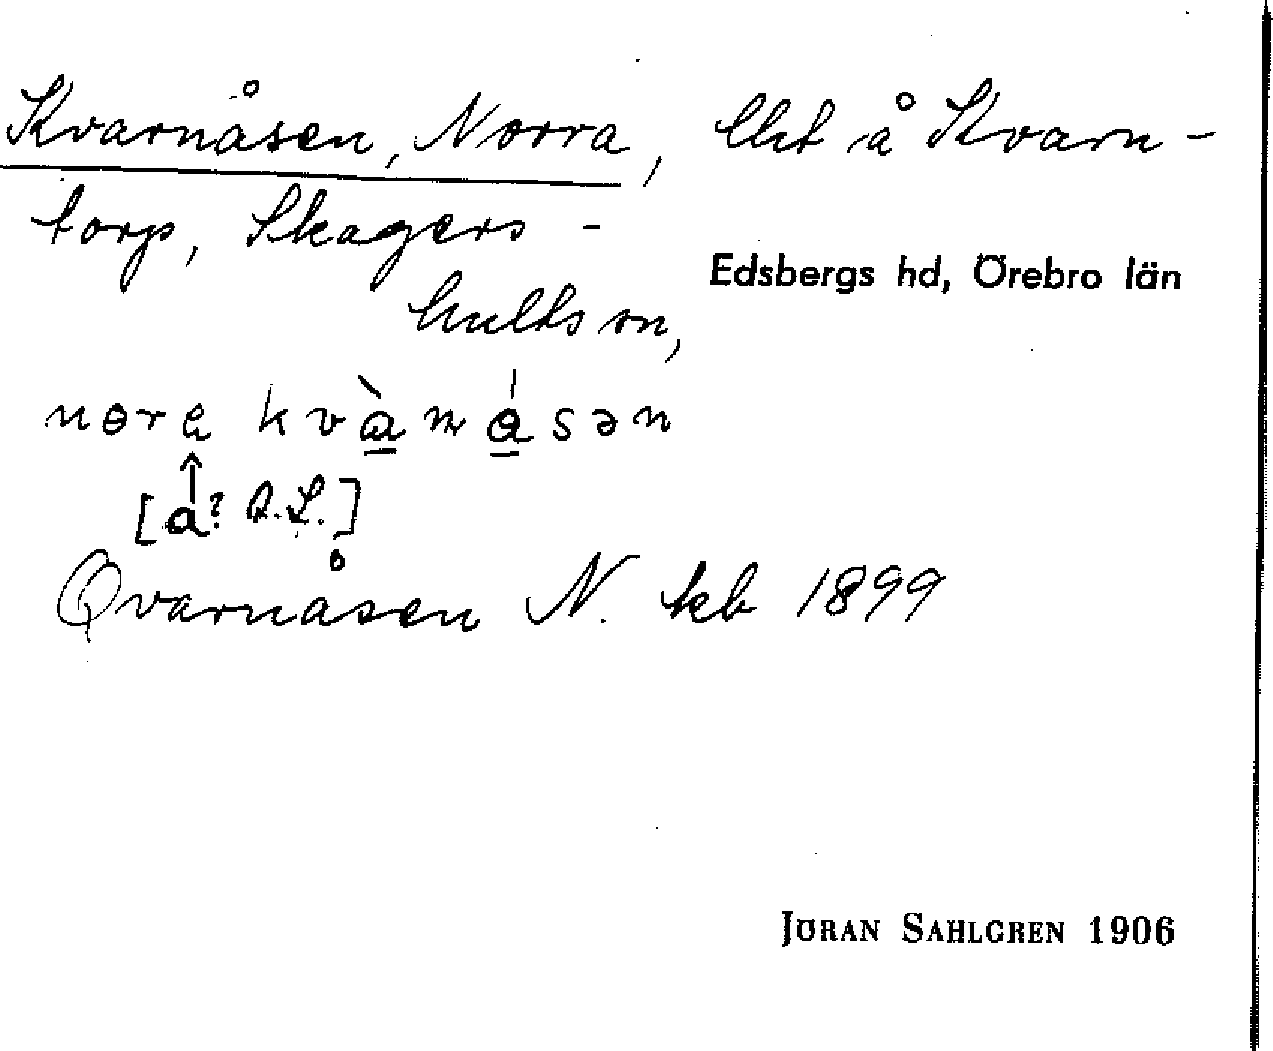 Kvarnåsen, Norra, lht å Kvarn-
torp, Skagers-
hults sn,
Edsbergs hd, Örebro län
nɵra kvànåsən
[a? R.S.]
Qvarnåsen N. kb 1899
JÖRAN SAHLGREN 1906